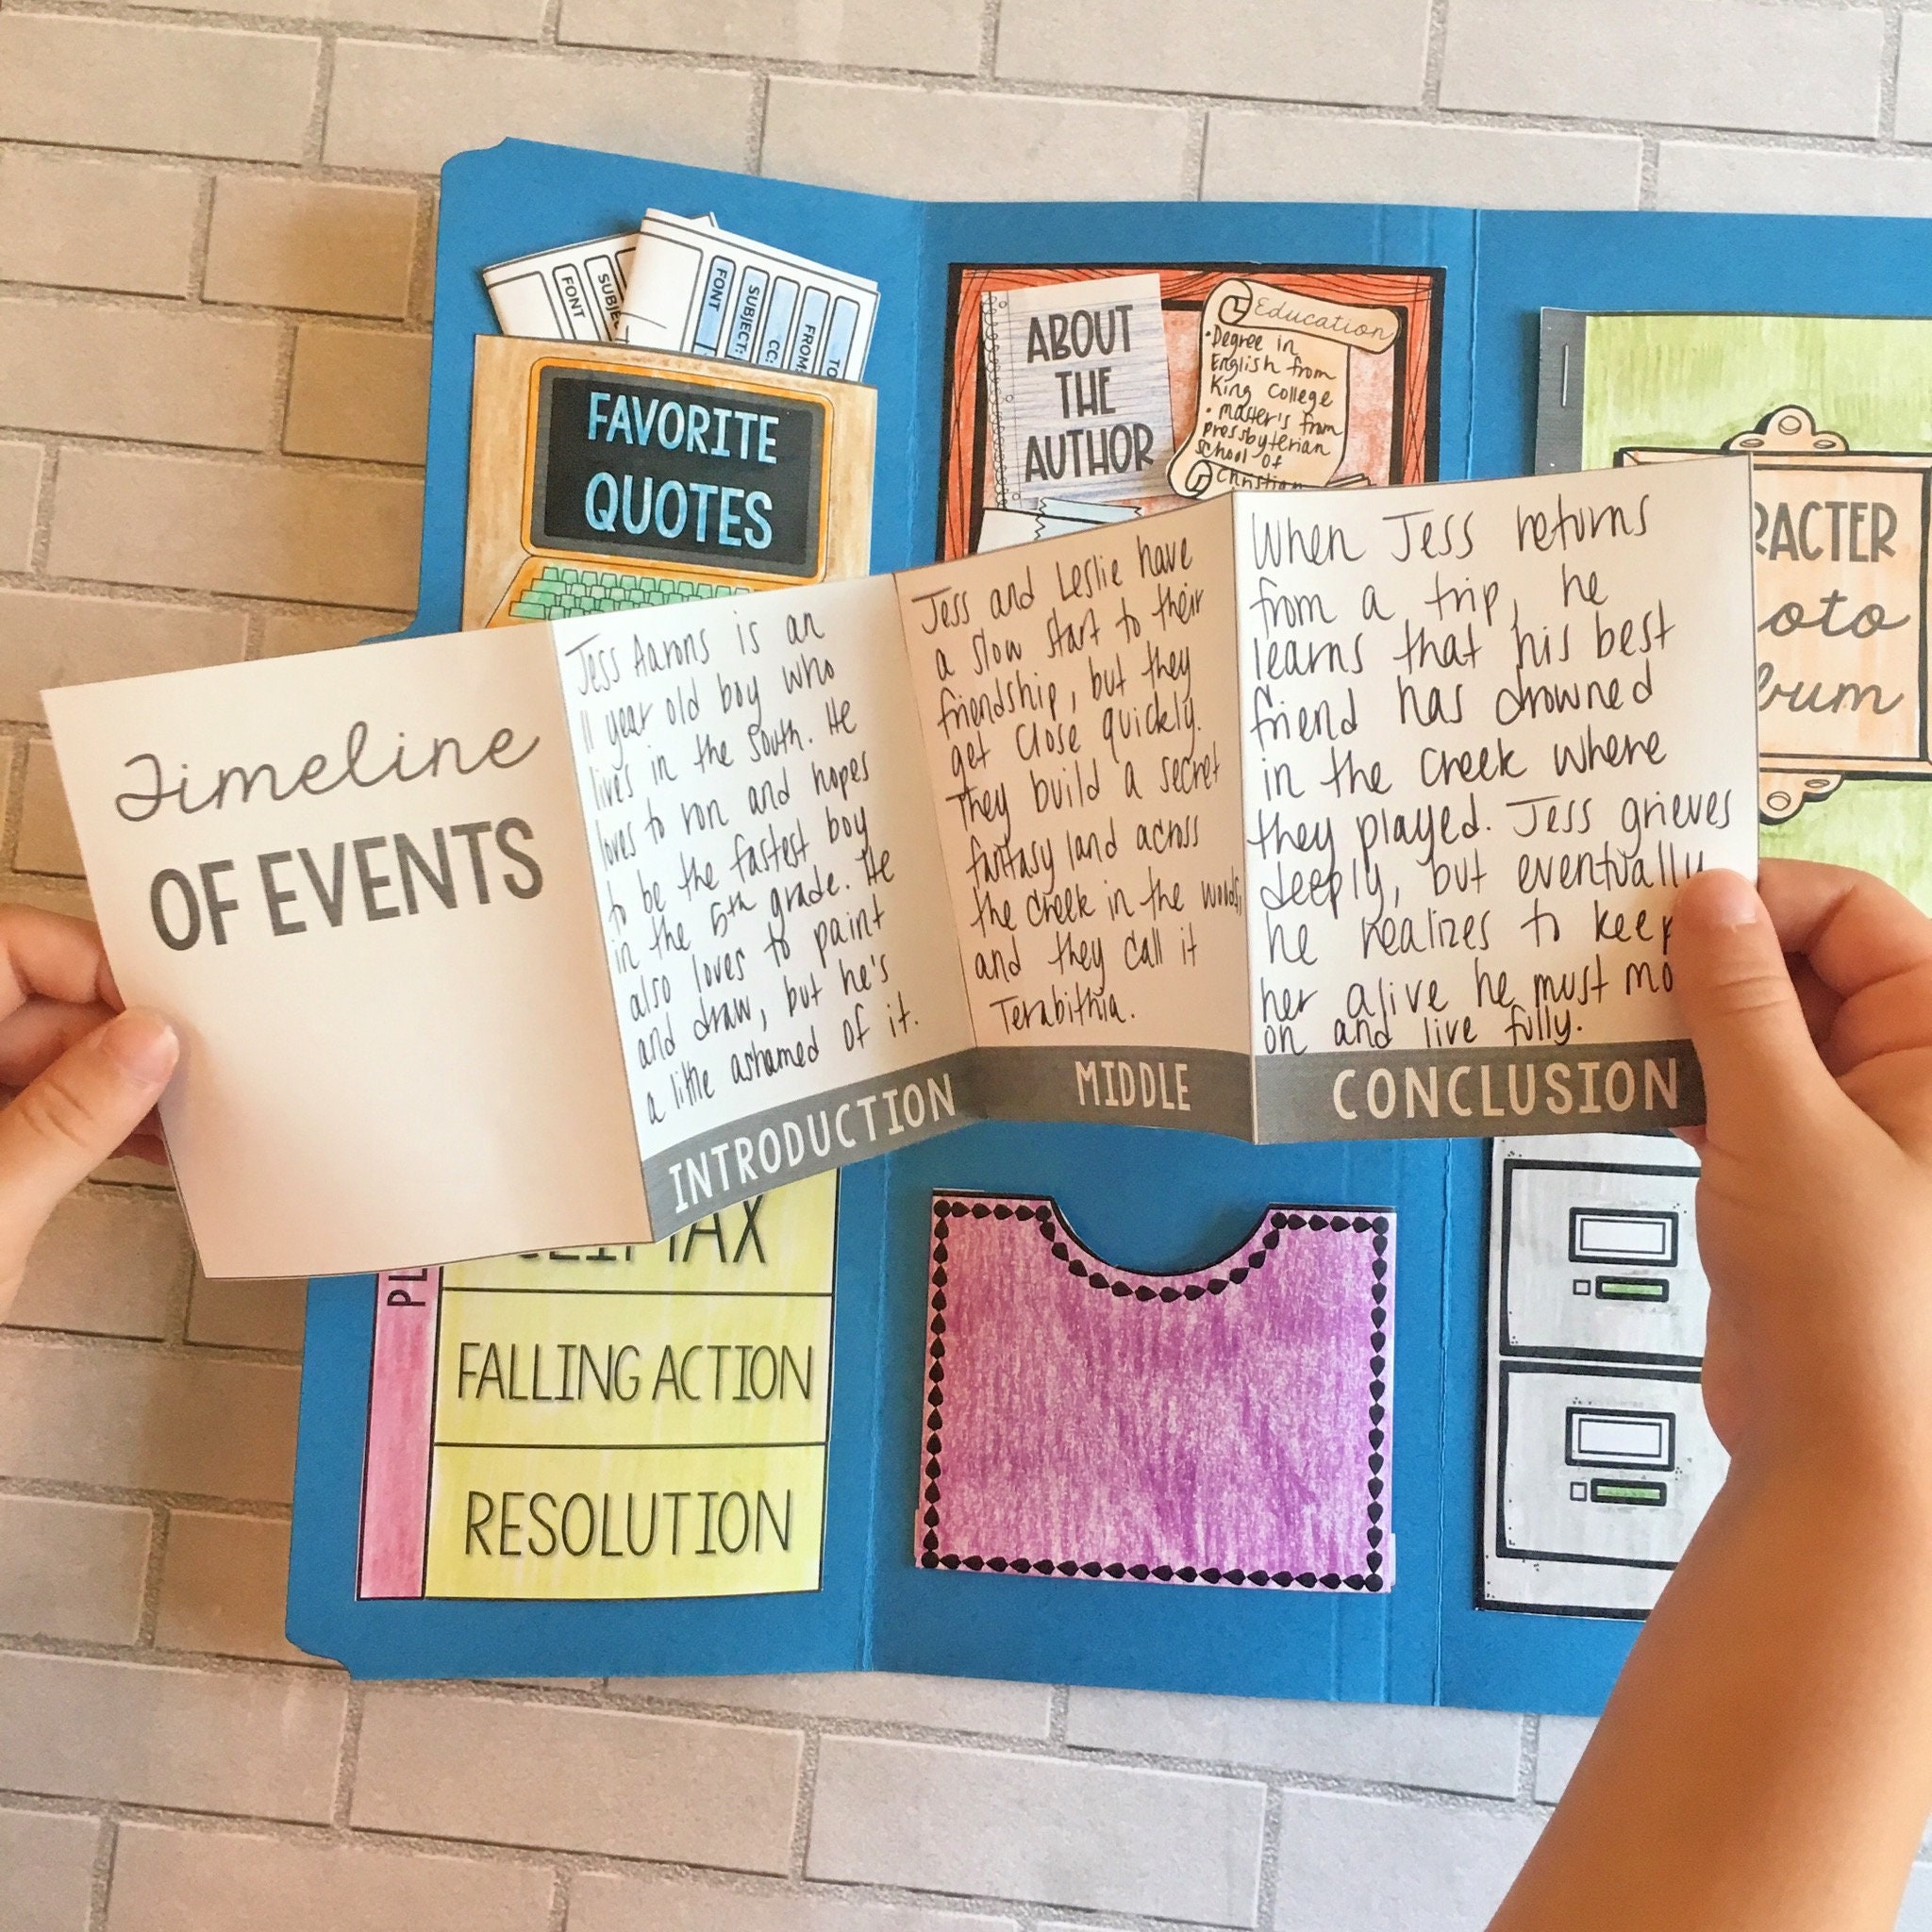 FONT
SUBJE
FONT
SUBJECT:
CC:
FROM:
TO
FAVORITE
QUOTES
ABOUT
THE
AUTHOR
Education
• Degree in
English from
King College
• Master's from
Pressbyterian
School of
Christian
RACTER
oto
bum
Timeline
OF EVENTS
Jess Aarons is an
11 year old boy who
lives in the South. He
loves to run and hopes
to be the fastest boy
in the 5th grade. He
also loves to paint
and draw, but he's
a little ashamed of it.
INTRODUCTION
Jess and Leslie have
a slow start to their
friendship, but they
get close quickly.
They build a secret
fantasy land across
the creek in the woods,
and they call it
Terabithia.
MIDDLE
When Jess returns
from a trip, he
learns that his best
friend has drowned
in the creek where
they played. Jess grieves
deeply, but eventually
he realizes to keep
her alive he must mo
on and live fully.
CONCLUSION
PL
CLIMAX
FALLING ACTION
RESOLUTION